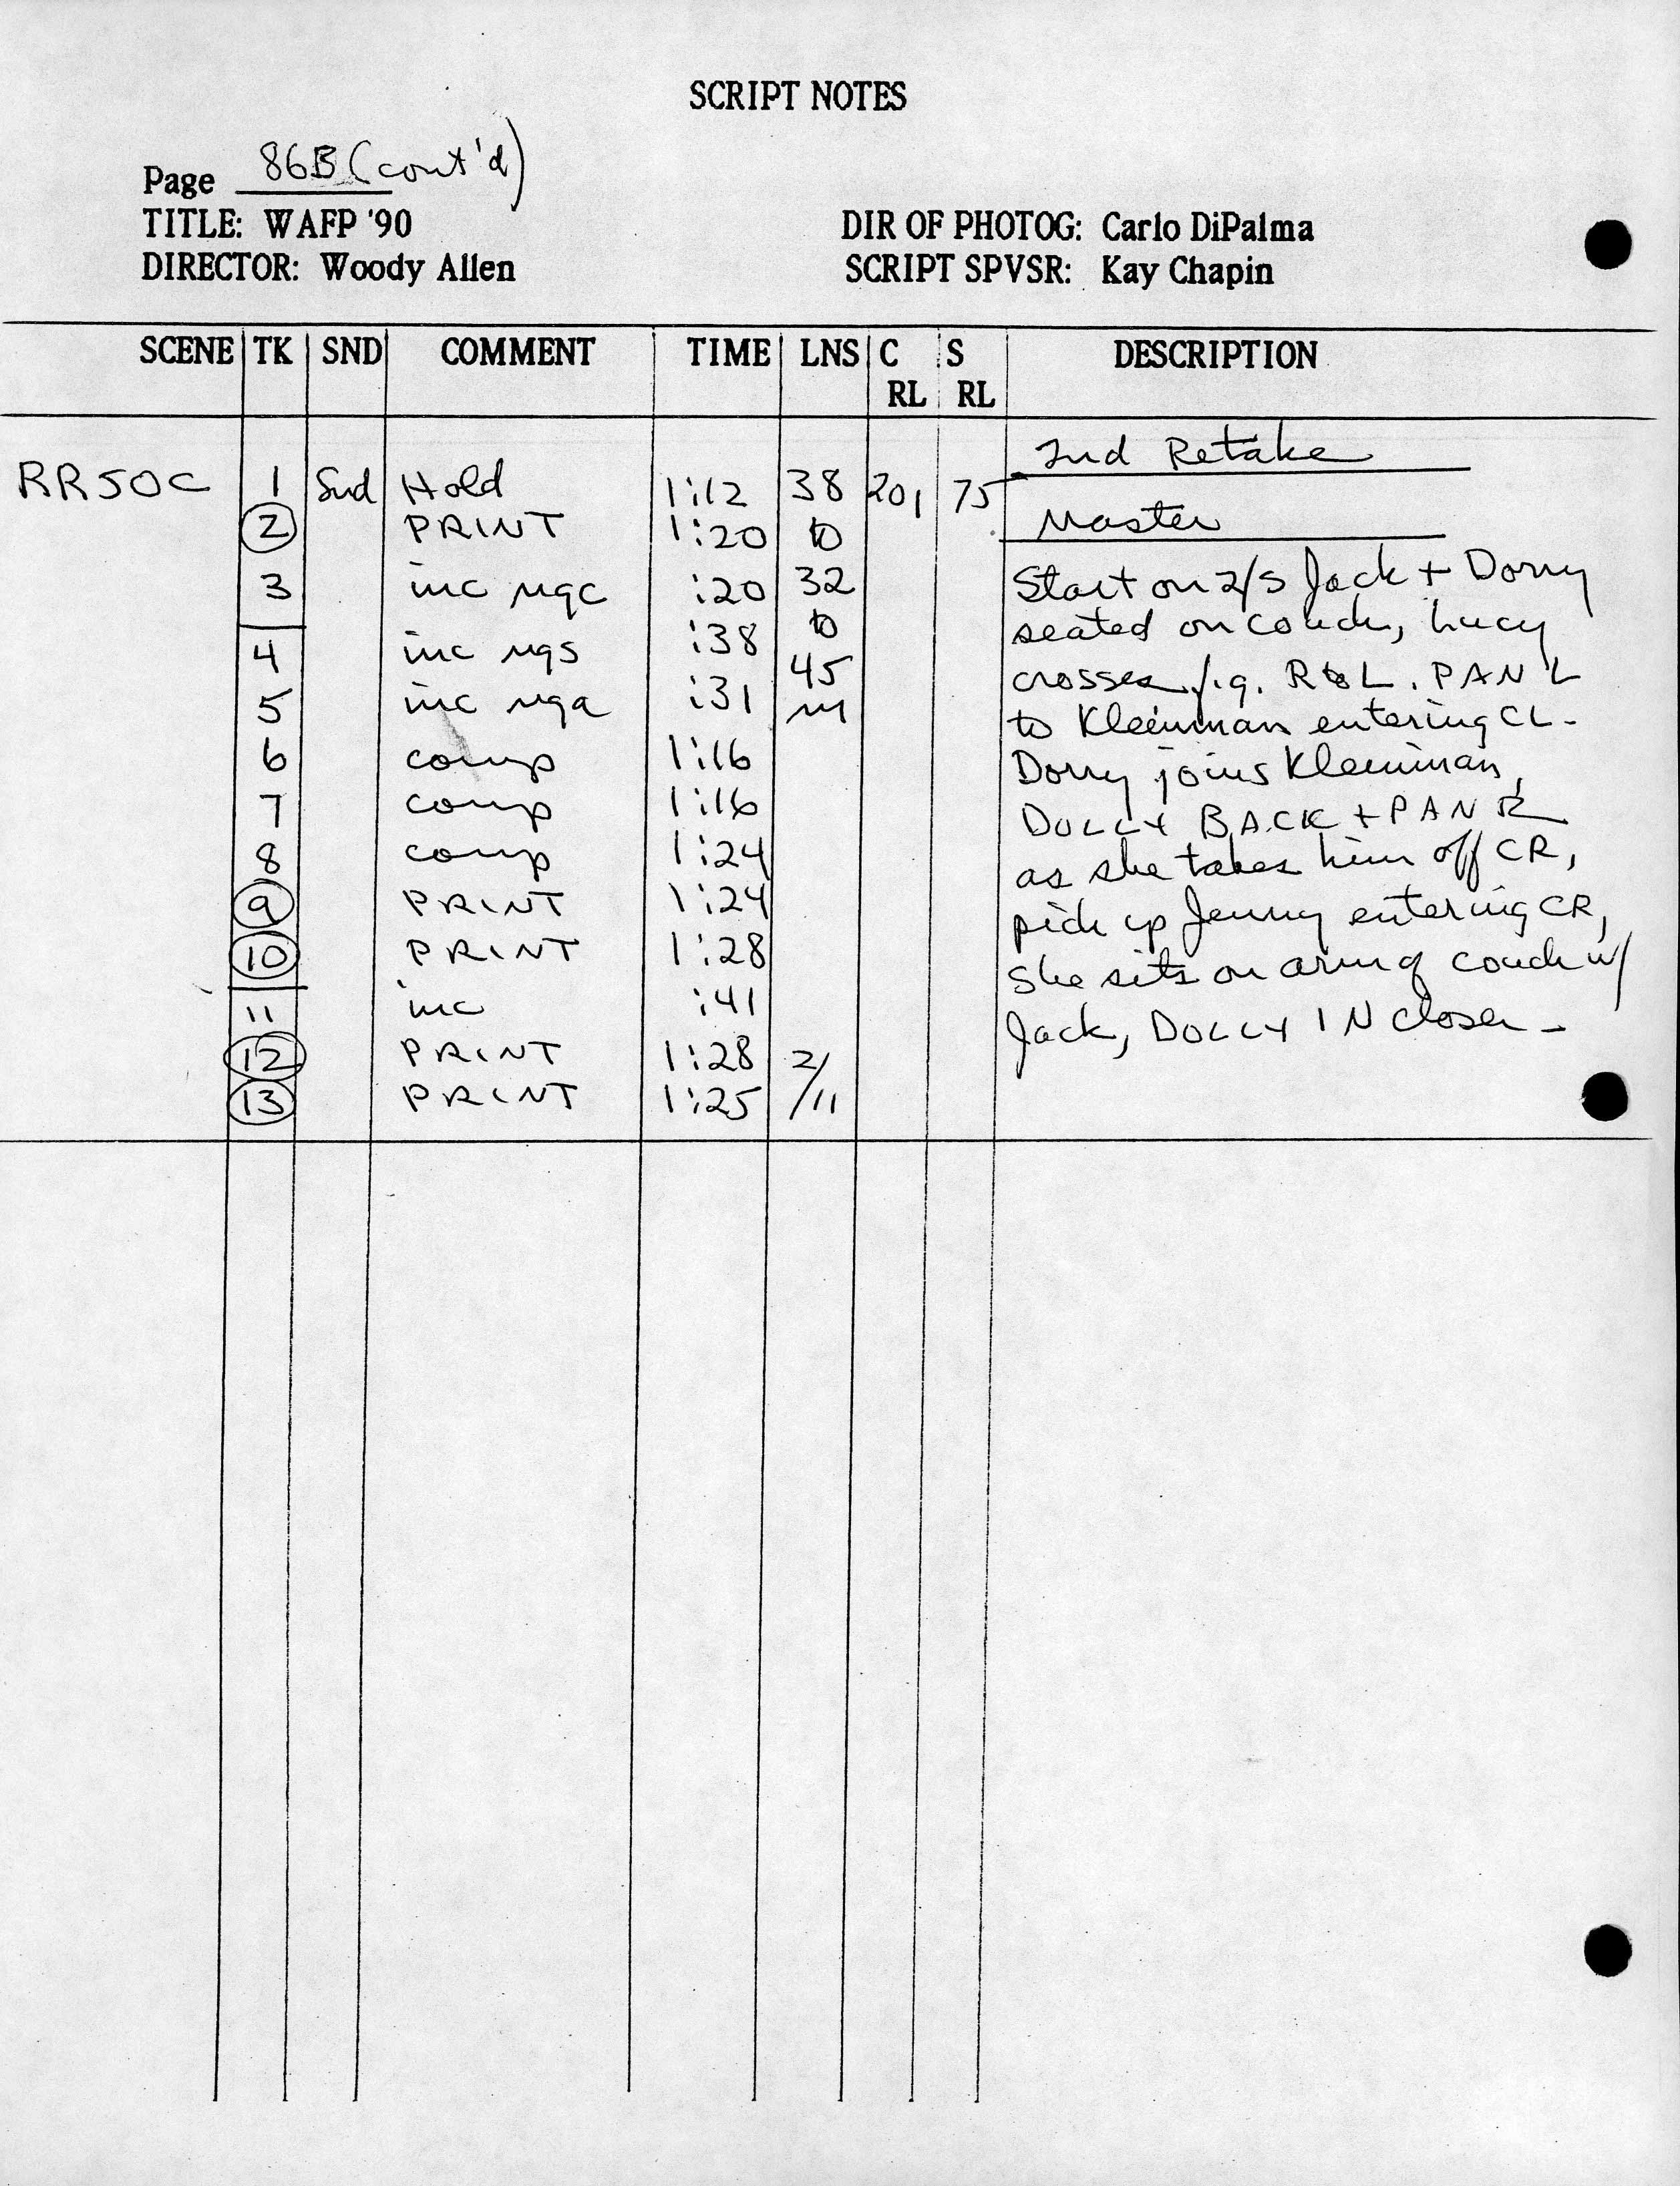 SCRIPT NOTES
Page 86B (cont'd)
TITLE: WAFP '90
DIR OF PHOTOG: Carlo DiPalma
DIRECTOR: Woody Allen
SCRIPT SPVSR: Kay Chapin
SCENE TK SND COMMENT TIME LNS C RL S RL DESCRIPTION
2nd Retake
RR50C 1 Snd Hold 1:12 38 201 75
2 PRINT 1:20 to Master
3 inc ngc :20 32 Start on 2/S Jack + Dorry
to seated on couch, Lucy
4 inc ngs :38 45 crosses f.g. R to L. PAN L
5 inc nga :31 m to Kleinman entering CL -
6 comp 1:16 Dorry joins Kleinman,
7 comp 1:16 DOLLY BACK + PAN R
8 comp 1:24 as she takes him off CR,
9 PRINT 1:24 pick up Jenny entering CR,
10 PRINT 1:28 She sits on arm of couch w/
11 inc :41 Jack, DOLLY IN closer -
12 PRINT 1:28 2/
13 PRINT 1:25 /11